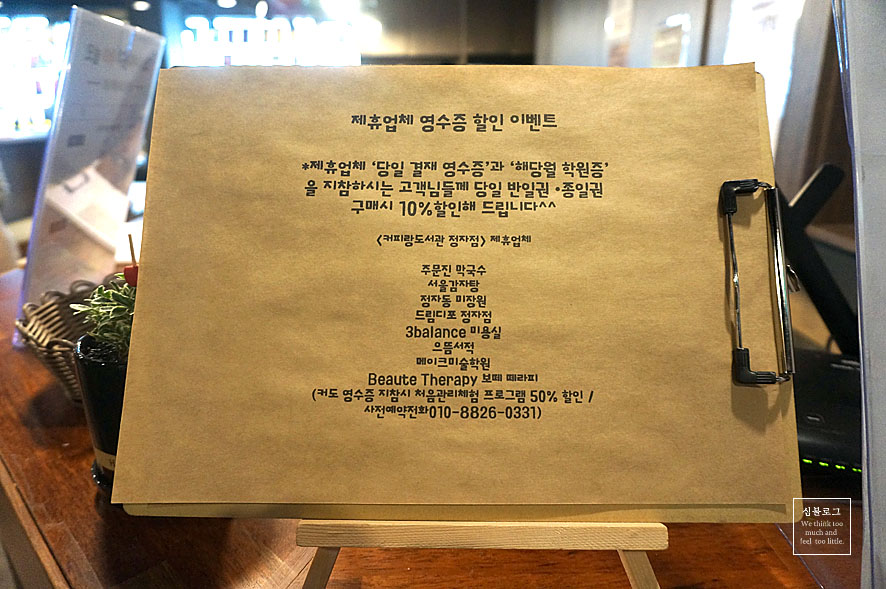 제휴업체 영수증 할인 이벤트
*제휴업체 '당일 결재 영수증'과 '해당월 학원증'
을 지참하시는 고객님들께 당일 반일권 •종일권
구매시 10%할인해 드립니다^^
<커피랑도서관 정자점> 제휴업체
주문진 막국수
서울감자탕
정자동 미장원
드림디포 정자점
3balance 미용실
으뜸서적
메이크미술학원
Beaute Therapy 보떼 떼라피
(커도 영수증 지참시 처음관리체험 프로그램 50% 할인 /
사전예약전화010-8826-0331)
심블로그
We think too
much and
feel too little.